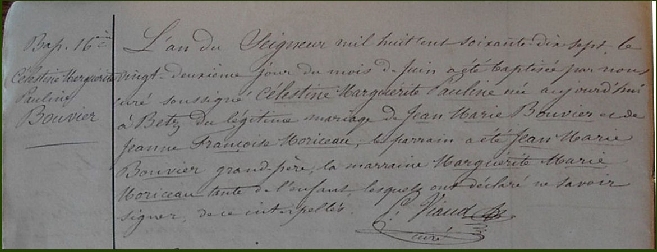 Bap. 16e
Célestine Marguerite
Pauline
Bouvier
L'an du Seigneur mil huit cent soixante-dix sept, le
vingt-deuxième jour du mois de Juin a été baptisée par nous
curé soussigné Célestine Marguerite Pauline née aujourd'hui
à Betz du légitime mariage de Jean Marie Bouvier et de
Jeanne Françoise Moriceau, le parrain a été Jean Marie
Bouvier grand père, la marraine Marguerite Marie
Moriceau tante de l'enfant, lesquels ont déclaré ne savoir
signer, de ce interpellés.
Viaud
curé